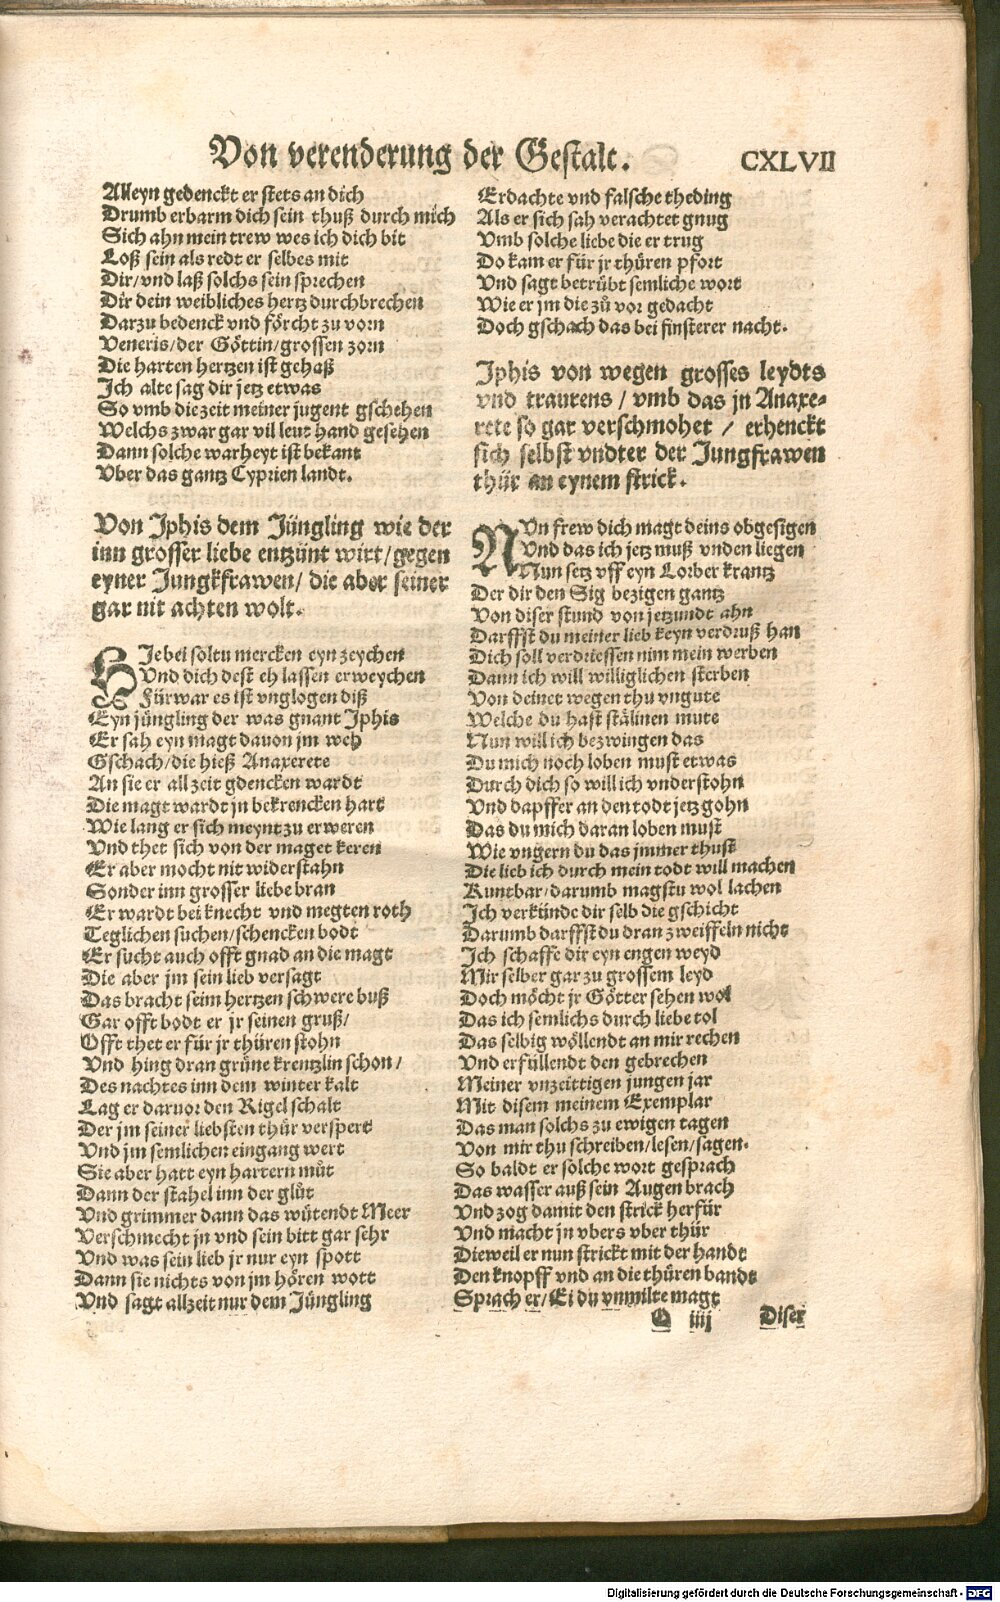 Von verenderung der Gestalt. CXLVII
Alleyn gedenckt er stets an dich
Drumb erbarm dich sein thuß durch mich
Sich ahn mein trew wes ich dich bit
Loß sein als redt er selbes mit
Dir/vnd laß solchs sein sprechen
Dir dein weibliches hertz durchbrechen
Darzu bedenck vnd förcht zu vorn
Veneris/der Göttin/grossen zorn
Die harten hertzen ist gehaß
Ich alte sag dir jetz etwas
So vmb die zeit meiner jugent gschehen
Welchs zwar gar vil leut hand gesehen
Dann solche warheyt ist bekant
Vber das gantz Cyprien landt.
Von Iphis dem Jüngling wie der
inn grosser liebe entzünt wirt/gegen
eyner Jungkfrawen/die aber seiner
gar nit achten wolt.
HIebei soltu mercken eyn zeychen
Vnd dich dest eh lassen erweychen
Fürwar es ist vnglogen diß
Eyn jüngling der was gnant Iphis
Er sah eyn magt dauon jm weh
Gschach/die hieß Anaxerete
An sie er all zeit gdencken wardt
Die magt wardt jn bekrencken hart
Wie lang er sich meynt zu erweren
Vnd thet sich von der maget keren
Er aber mocht nit widerstahn
Sonder inn grosser liebe bran
Er wardt bei knecht vnd megten roth
Teglichen suchen/schencken bodt
Er sucht auch offt gnad an die magt
Die aber jm sein lieb versagt
Das bracht seim hertzen schwere buß
Gar offt bodt er jr seinen gruß/
Offt thet er für jr thüren stohn
Vnd hing dran grüne krentzlin schon/
Des nachtes inn dem winter kalt
Lag er daruor den Rigel schalt
Der jm seiner liebsten thür verspert
Vnd jm semlichen eingang wert
Sie aber hatt eyn hartern můt
Dann der stahel inn der glůt
Vnd grimmer dann das wütendt Meer
Verschmecht jn vnd sein bitt gar sehr
Vnd was sein lieb jr nur eyn spott
Dann sie nichts von jm hören wott
Vnd sagt allzeit nur dem Jüngling
Erdachte vnd falsche theding
Als er sich sah verachtet gnug
Vmb solche liebe die er trug
Do kam er für jr thüren pfort
Vnd sagt betrübt semliche wort
Wie er jm die zů vor gedacht
Doch gschach das bei finsterer nacht.
Iphis von wegen grosses leydts
vnd traurens / vmb das jn Anaxe-
rete so gar verschmohet / erhenckt
sich selbst vndter der Jungfrawen
thür an eynem strick.
NVn frew dich magt deins obgesigen
Vnd das ich jetz muß vnden liegen
Nun setz vff eyn Lorber krantz
Der dir den Sig bezigen gantz
Von diser stund von jetzundt ahn
Darffst du meiner lieb keyn verdruß han
Dich soll verdriessen nim mein werben
Dann ich will williglichen sterben
Von deinet wegen thu vngute
Welche du hast stälinen mute
Nun will ich bezwingen das
Du mich noch loben must etwas
Durch dich so will ich vnderstohn
Vnd dapffer an den todt jetz gohn
Das du mich daran loben must
Wie vngern du das jmmer thust
Die lieb ich durch mein todt will machen
Kuntbar/darumb magstu wol lachen
Ich verkünde dir selb die gschicht
Darumb darffst du dran zweiffeln nicht
Ich schaffe dir eyn engen weyd
Mir selber gar zu grossem leyd
Doch möcht jr Götter sehen wol
Das ich semlichs durch liebe tol
Das selbig wöllendt an mir rechen
Vnd erfüllendt den gebrechen
Meiner vnzeittigen jungen jar
Mit disem meinem Exemplar
Das man solchs zu ewigen tagen
Von mir thu schreiben/lesen/sagen.
So baldt er solche wort gesprach
Das wasser auß sein Augen brach
Vnd zog damit den strick herfür
Vnd macht jn vbers vber thür
Dieweil er nun strickt mit der handt
Den knopff vnd an die thüren bandt
Sprach er/Ei du vnmilte magt
Q iiij Diser
Digitalisierung gefördert durch die Deutsche Forschungsgemeinschaft - DFG